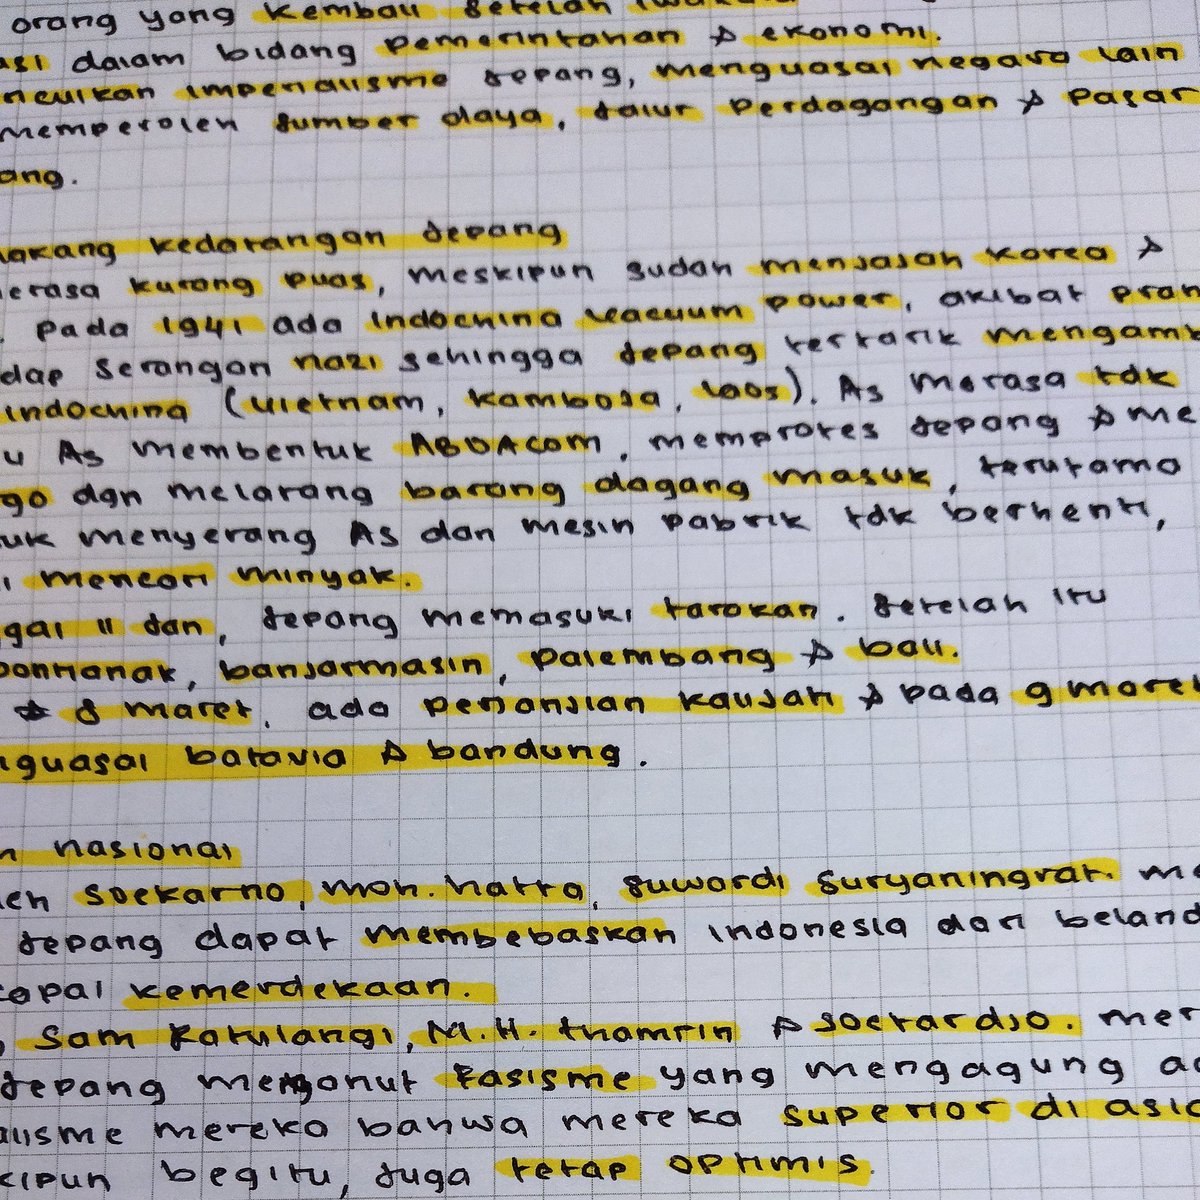 orang yang kembali setelah
asi dalam bidang pemerintahan & ekonomi.
imperialisme Jepang, menguasai negara lain
memperoleh sumber daya, jalur perdagangan & pasar
ang.
lakang kedatangan Jepang
erasa kurang puas, meskipun sudah menjajah Korea &
. Pada 1941 ada Indochina vacuum power, akibat pran
dap serangan nazi sehingga Jepang tertarik mengamb
indochina (Vietnam, Kamboja, Laos). As merasa tdk
u As membentuk ABDACOM, memprotes Jepang & me
go dgn melarang barang dagang masuk, terutama
uk menyerang As dan mesin pabrik tdk berhenti,
i mencari minyak.
gal 11 Jan, Jepang memasuki tarakan. Setelah itu
ponhanak, banjarmasin, palembang & bali.
& 8 maret, ada perjanjian kalijati & pada 9 maret
nguasai batavia & bandung.
n nasional
leh Soekarno, moh. hatta, suwardi suryaningrat me
Jepang dapat membebaskan indonesia dari beland
capai kemerdekaan.
, Sam Ratulangi, M.H. thamrin & soetardjo. mer
Jepang menganut fasisme yang mengagung a
alisme mereka bahwa mereka superior di asia
kipun begitu, juga tetap optimis.